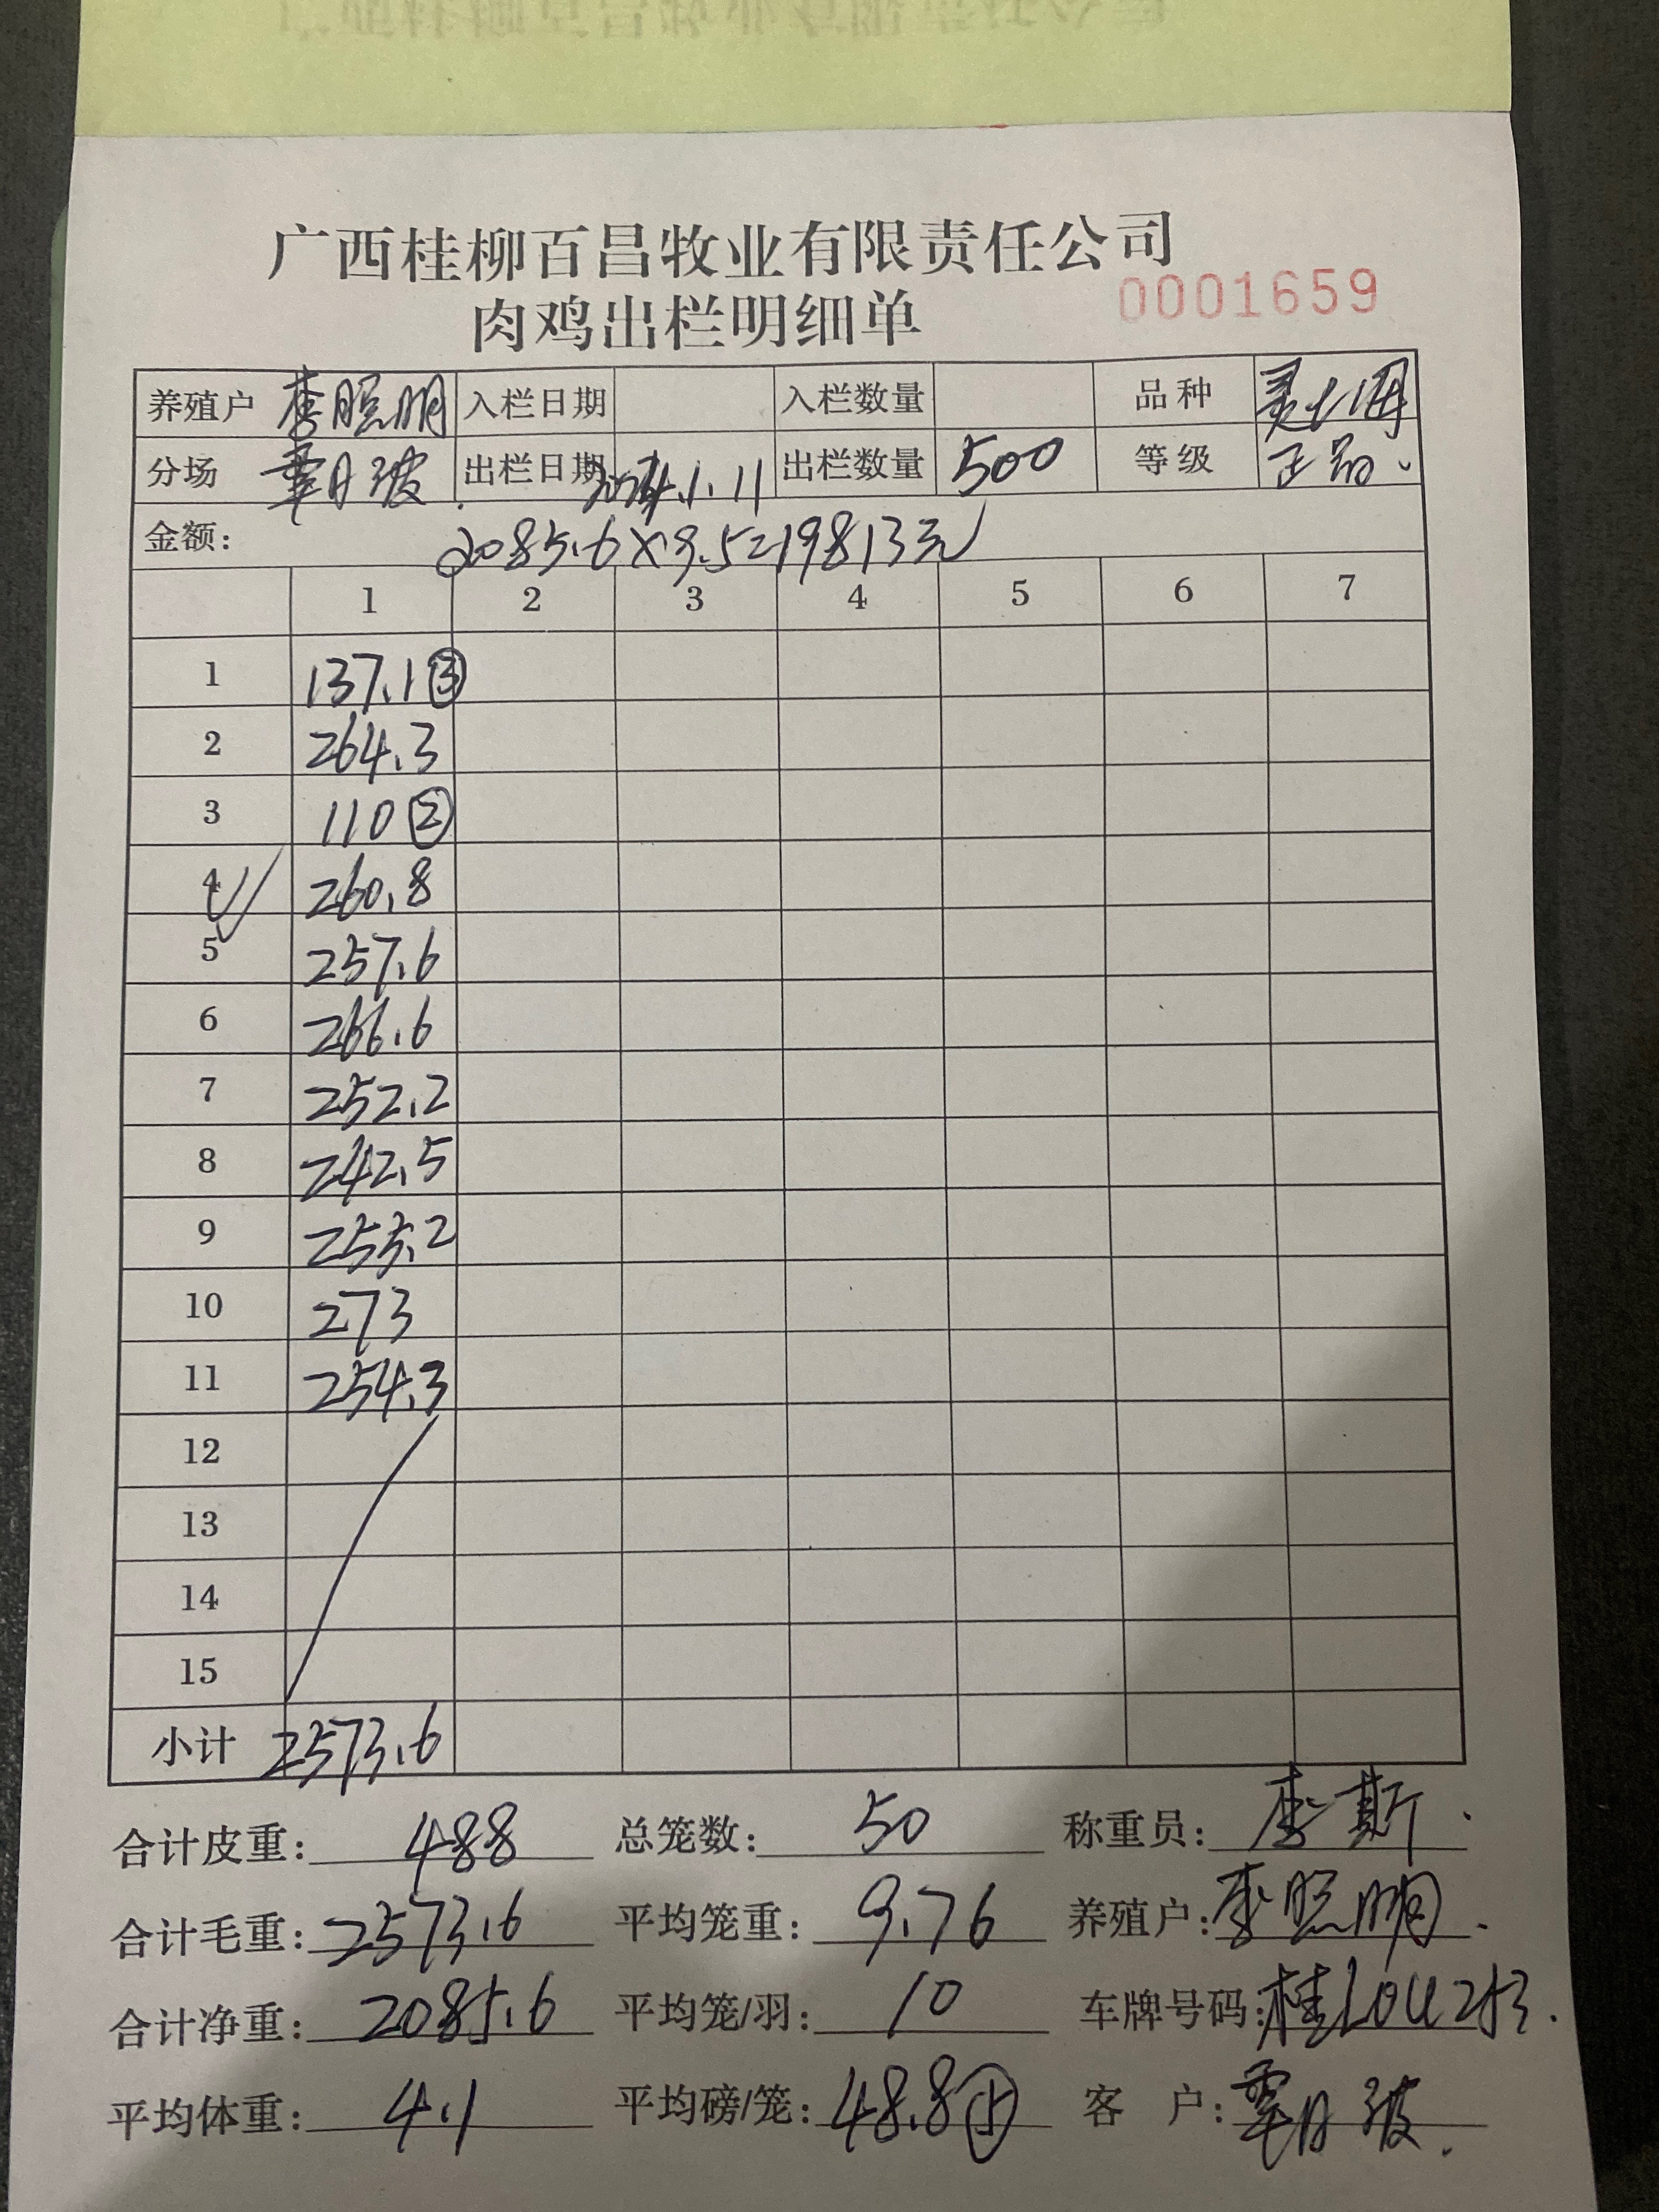 广西桂柳百昌牧业有限责任公司
肉鸡出栏明细单 0001659
养殖户 李照明 入栏日期 入栏数量 品种
分场 覃月波 出栏日期 2024.1.11 出栏数量 500 等级 正品
金额: 2085.6×9.5=19813元
1 2 3 4 5 6 7
1 137.1③
2 264.3
3 110②
4 260.8
5 257.6
6 266.6
7 252.2
8 242.5
9 255.2
10 273
11 254.3
12
13
14
15
小计 2573.6
合计皮重: 488 总笼数: 50 称重员: 李斯
合计毛重: 2573.6 平均笼重: 9.76 养殖户: 李照明
合计净重: 2085.6 平均笼/羽: 10 车牌号码:
平均体重: 4.1 平均磅/笼: 48.8 客 户: 覃月波